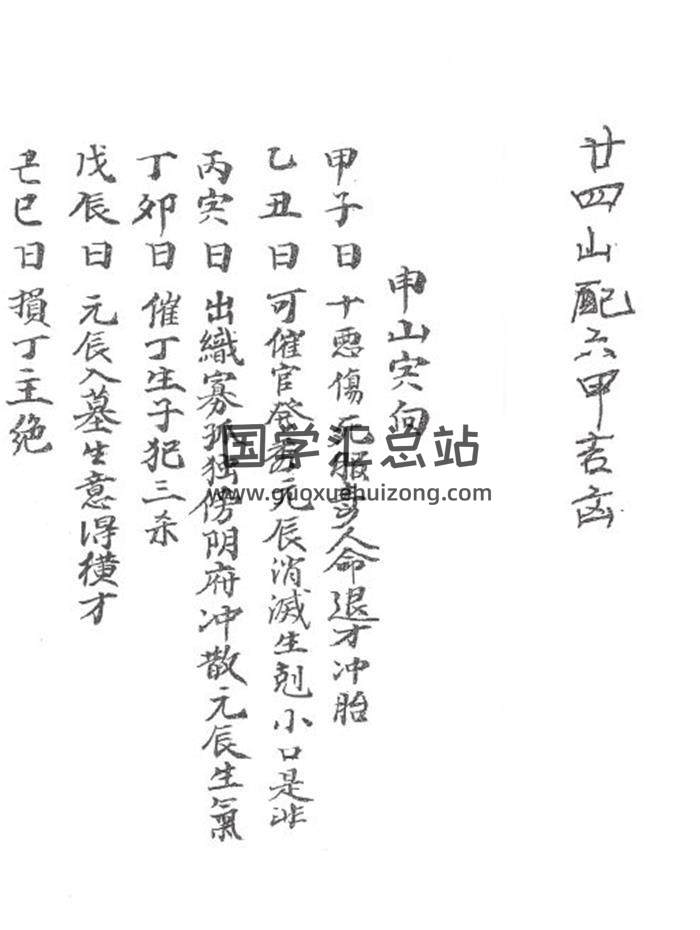 廿四山配六甲吉凶
申山寅向
甲子日 十恶傷死 人命退才冲胎
乙丑日 可催官登 元辰消滅生剋小口是非
丙寅日 出鱵寡孤独傍阴府冲散元辰生氣
丁卯日 催丁生子犯三杀
戊辰日 元辰入墓生意得横才
己巳日 損丁主绝
国学汇总站
www.guoxuehuizong.com